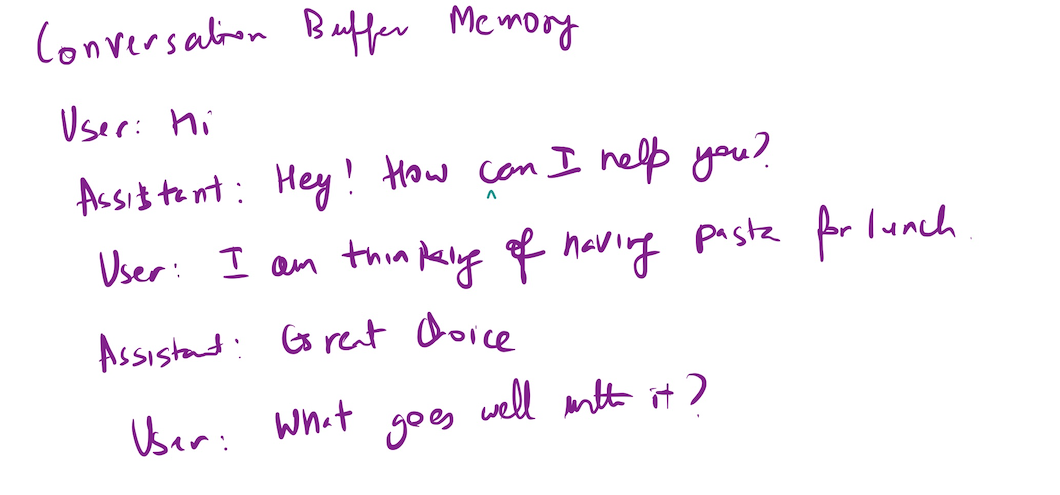 Conversation Buffer Memory
User: Hi
Assistant: Hey! How can I help you?
User: I am thinking of having pasta for lunch.
Assistant: Great Choice
User: What goes well with it?